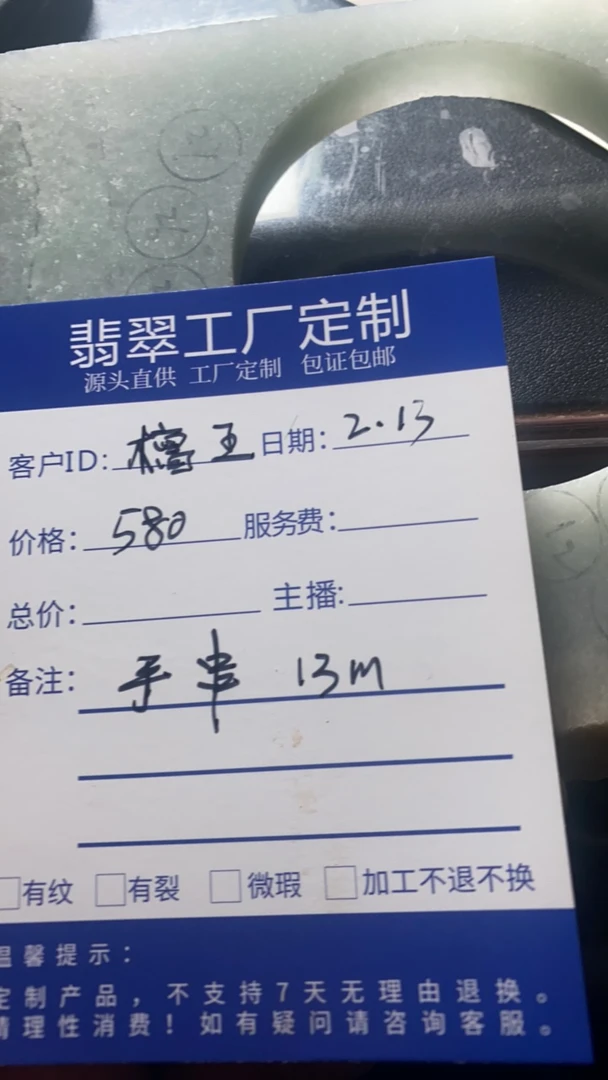 翡翠工厂定制
源头直供 工厂定制 包证包邮
客户ID: 檀王 日期: 2.13
价格: 580 服务费:
总价: 主播:
备注: 手串 13m
有纹 有裂 微瑕 加工不退不换
温馨提示:
定制产品，不支持7天无理由退换。
请理性消费！如有疑问请咨询客服。